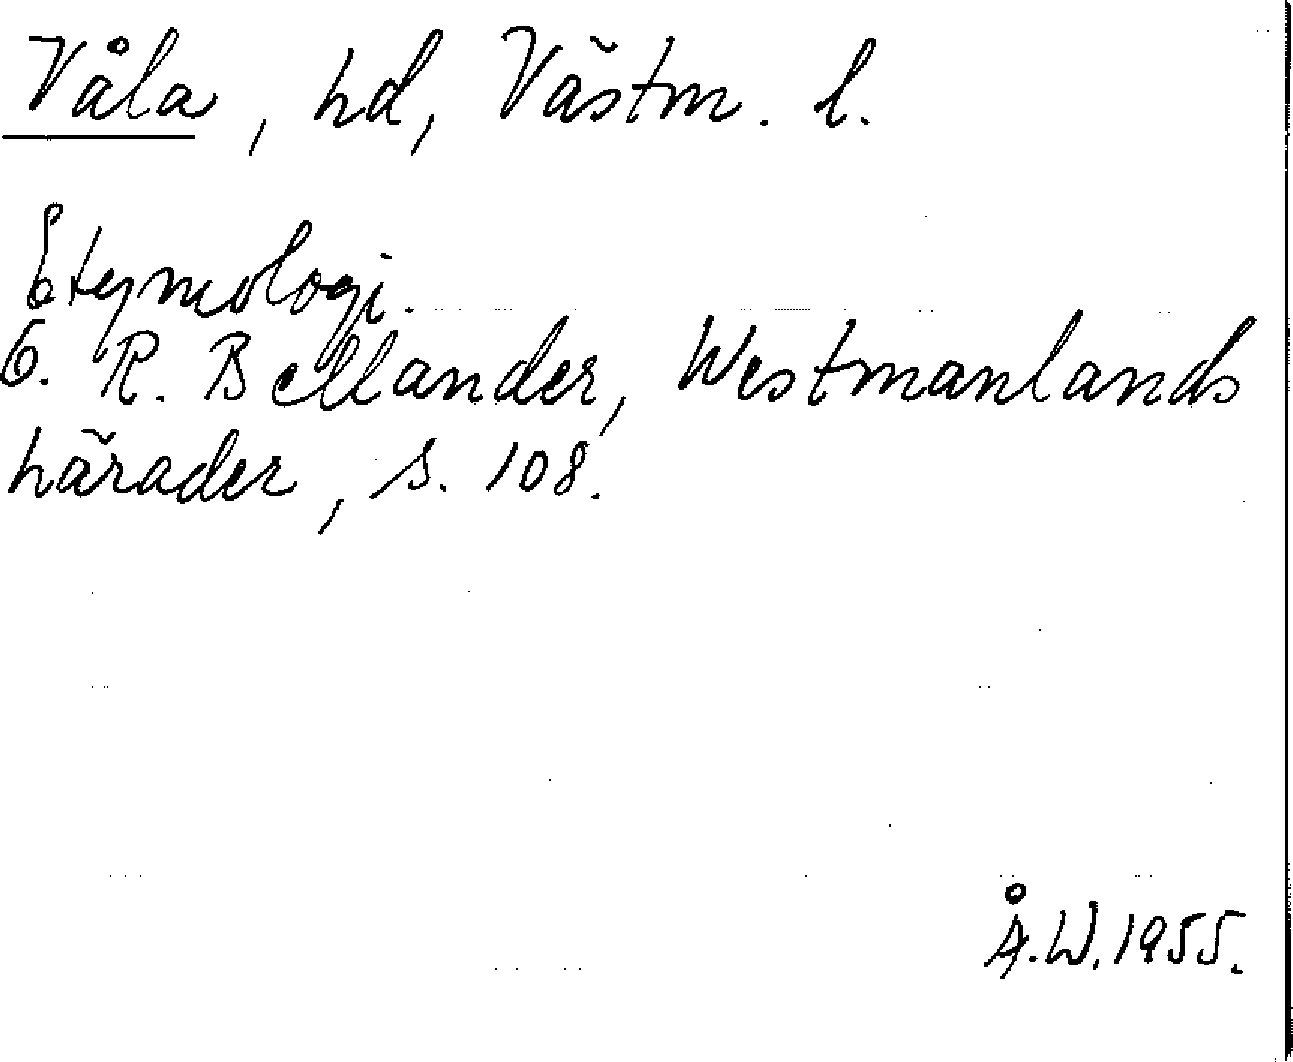 Våla, hd, Västm. l.
Etymologi.
E. R. Bellander, Westmanlands
härader, s. 108.
Å.W. 1955.